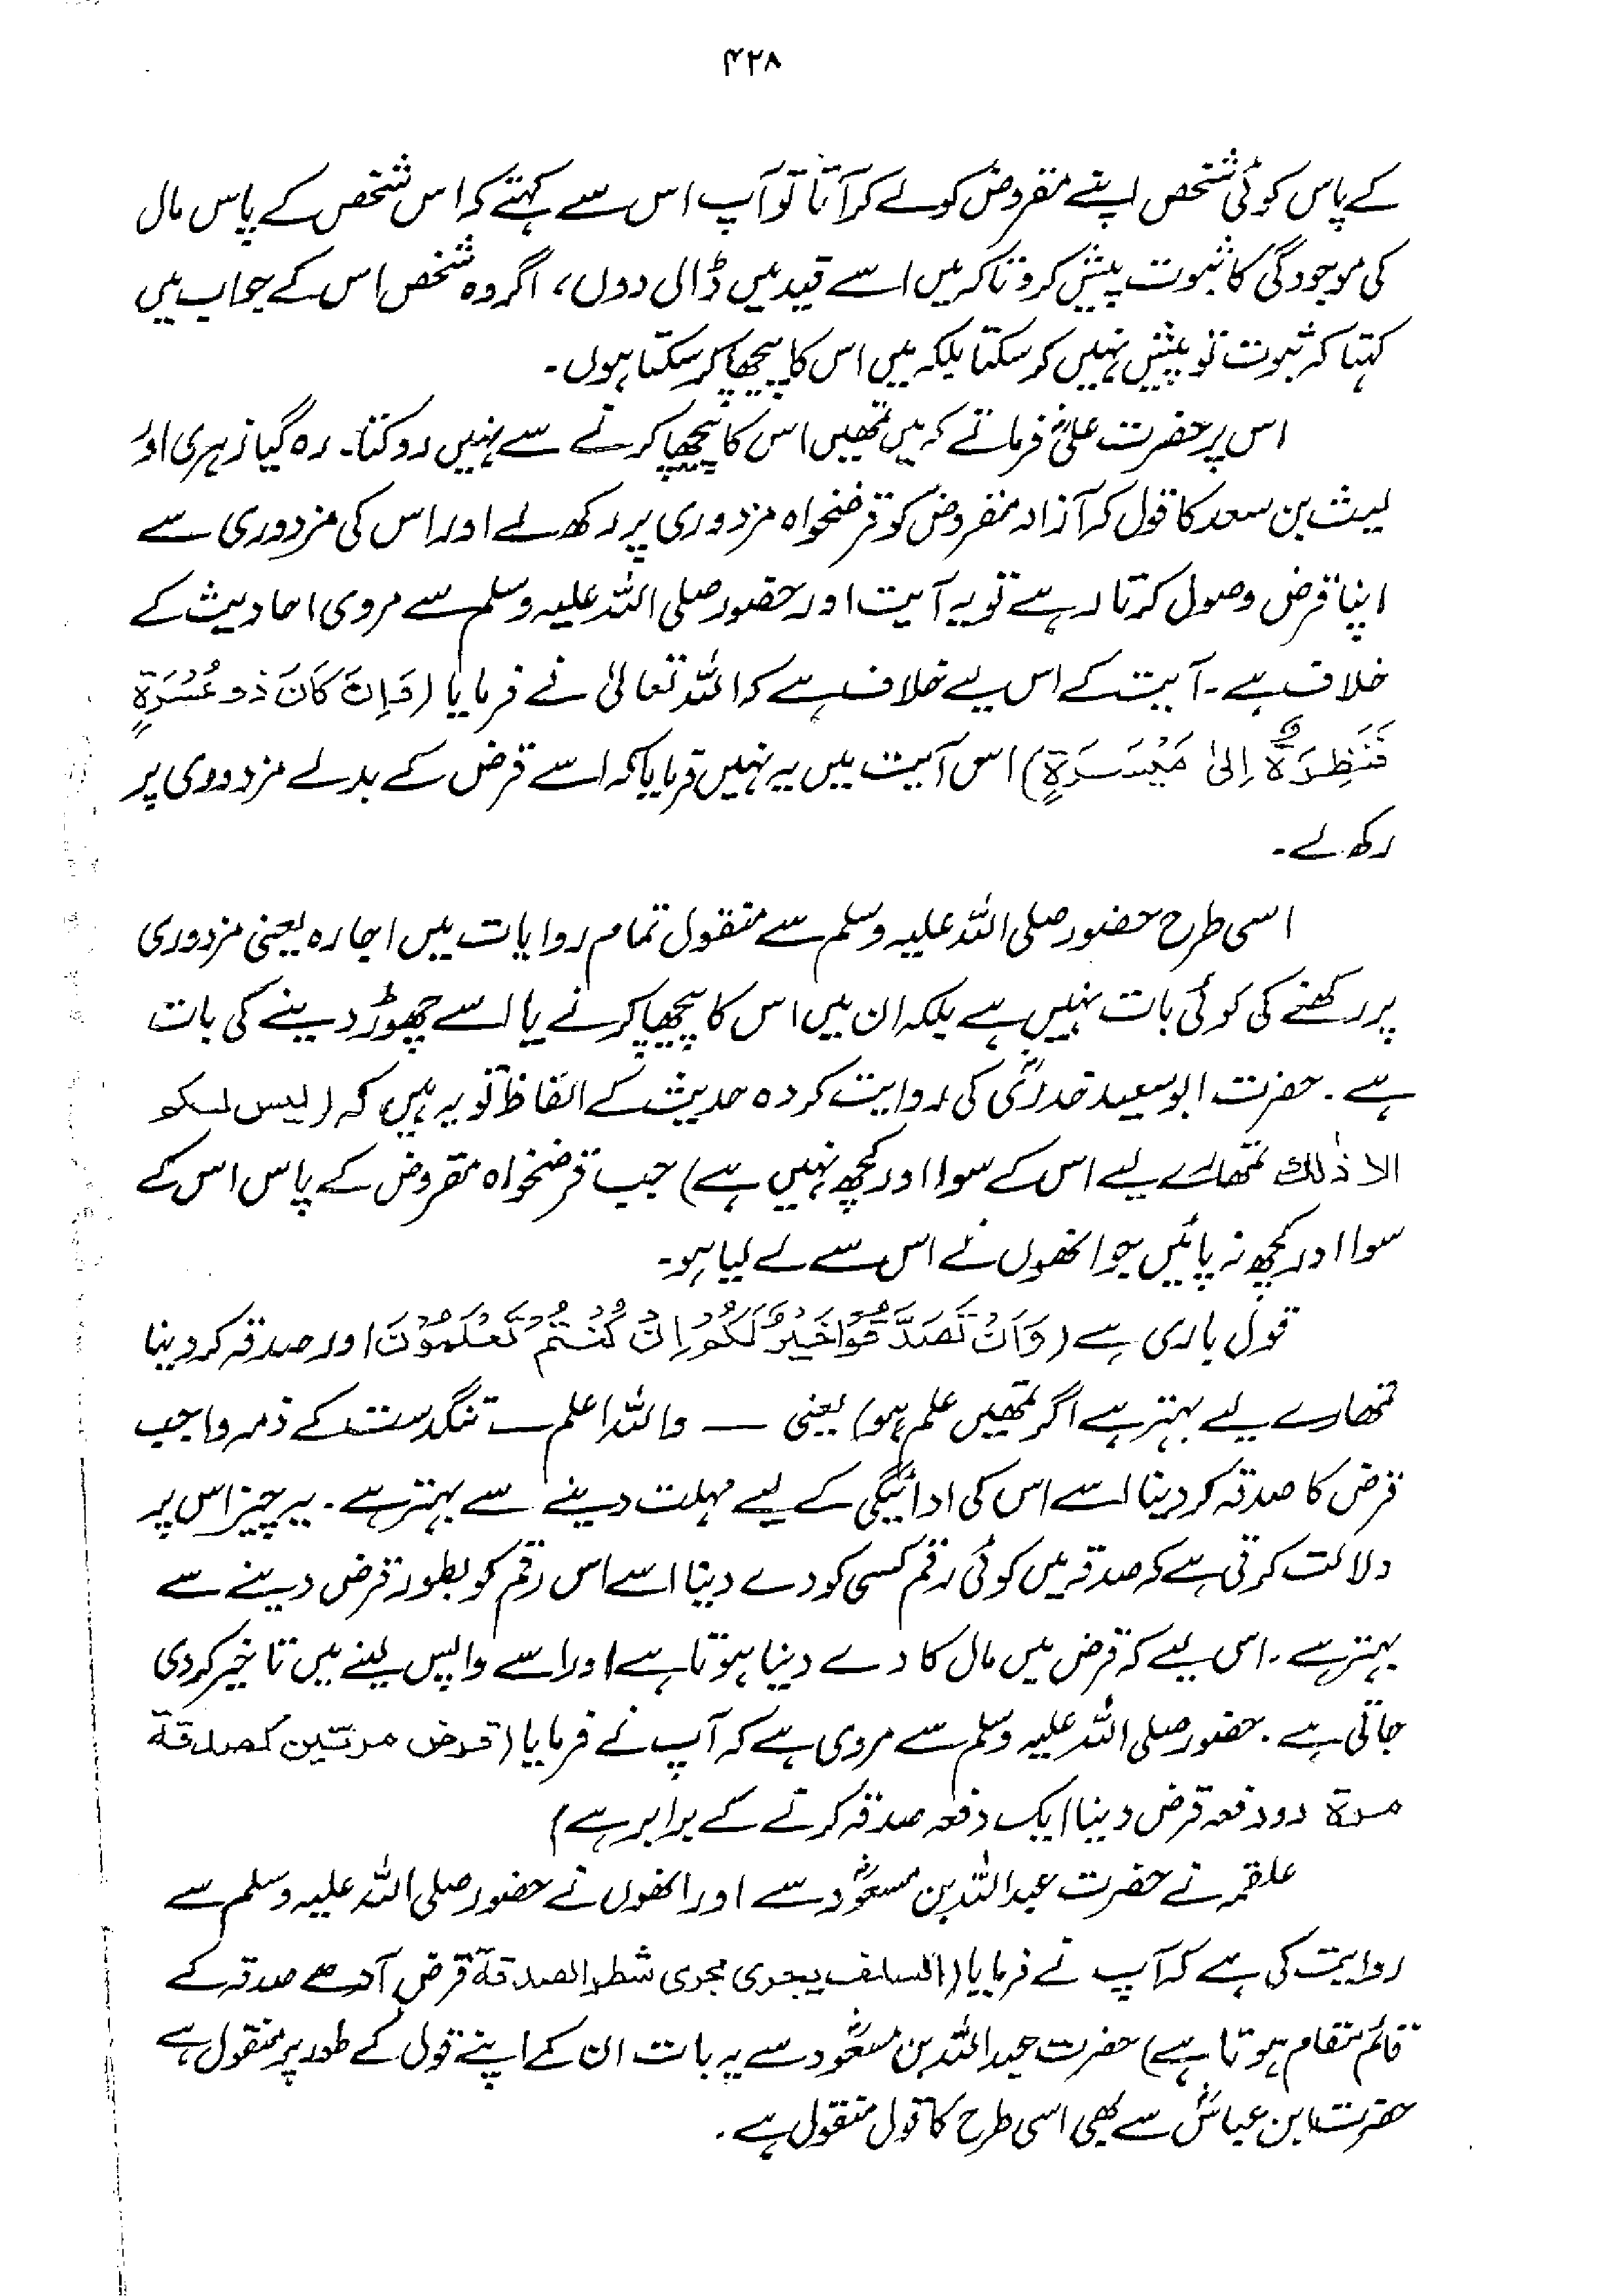 ۴۲۸
کے پاس کوئی شخص اپنے مقروض کو لے کر آتا تو آپ اس سے کہتے کہ اس شخص کے پاس مال
کی موجودگی کا ثبوت پیش کرو تاکہ میں اسے قید میں ڈال دوں، اگر وہ شخص اس کے جواب میں
کہتا کہ ثبوت تو پیش نہیں کر سکتا بلکہ میں اس کا پیچھا کر سکتا ہوں۔
اس پر حضرت علیؓ فرماتے کہ میں تمھیں اس کا پیچھا کرنے سے نہیں روکتا۔ رہ گیا زہری اور
لیث بن سعد کا قول کہ آزاد مقروض کو قرضخواہ مزدوری پر رکھ لے اور اس کی مزدوری سے
اپنا قرض وصول کرتا رہے تو یہ آیت اور حضور صلی اللہ علیہ وسلم سے مروی احادیث کے
خلاف ہے۔ آیت کے اس لیے خلاف ہے کہ اللہ تعالیٰ نے فرمایا (وَاِنْ کَانَ ذُو عُسْرَةٍ
فَنَظِرَةٌ اِلیٰ مَیْسَرَةٍ) اس آیت میں یہ نہیں فرمایا کہ اسے قرض کے بدلے مزدوری پر
رکھ لے۔
اسی طرح حضور صلی اللہ علیہ وسلم سے منقول تمام روایات میں اجارہ یعنی مزدوری
پر رکھنے کی کوئی بات نہیں ہے بلکہ ان میں اس کا پیچھا کرنے یا اسے چھوڑ دینے کی بات
ہے۔ حضرت ابوسعید خدریؓ کی روایت کردہ حدیث کے الفاظ تو یہ ہیں کہ (لیس لکم
الا ذٰلک تمھارے لیے اس کے سوا اور کچھ نہیں ہے) جب قرضخواہ مقروض کے پاس اس کے
سوا اور کچھ نہ پائیں جو انھوں نے اس سے لے لیا ہو۔
قول باری ہے (وَاَنْ تَصَدَّقُوْا خَیْرٌ لَّکُمْ اِنْ کُنْتُمْ تَعْلَمُوْنَ اور صدقہ کر دینا
تمھارے لیے بہتر ہے اگر تمھیں علم ہو) یعنی — واللہ اعلم — تنگدست کے ذمہ واجب
قرض کا صدقہ کر دینا اسے اس کی ادائیگی کے لیے مہلت دینے سے بہتر ہے۔ یہ چیز اس پر
دلالت کرتی ہے کہ صدقہ میں کوئی رقم کسی کو دے دینا اسے اس رقم کو بطور قرض دینے سے
بہتر ہے۔ اس لیے کہ قرض میں مال کا دے دینا ہوتا ہے اور اسے واپس لینے میں تاخیر کر دی
جاتی ہے۔ حضور صلی اللہ علیہ وسلم سے مروی ہے کہ آپ نے فرمایا (قرض مرتین کصدقة
مرة دو دفعہ قرض دینا ایک دفعہ صدقہ کرنے کے برابر ہے)
علقمہ نے حضرت عبداللہ بن مسعودؓ سے اور انھوں نے حضور صلی اللہ علیہ وسلم سے
روایت کی ہے کہ آپ نے فرمایا (السلف یجری مجری شطر الصدقة قرض آدھے صدقہ کے
قائم مقام ہوتا ہے) حضرت عبداللہ بن مسعودؓ سے یہ بات ان کے اپنے قول کے طور پر منقول ہے
حضرت ابن عباسؓ سے بھی اسی طرح کا قول منقول ہے۔